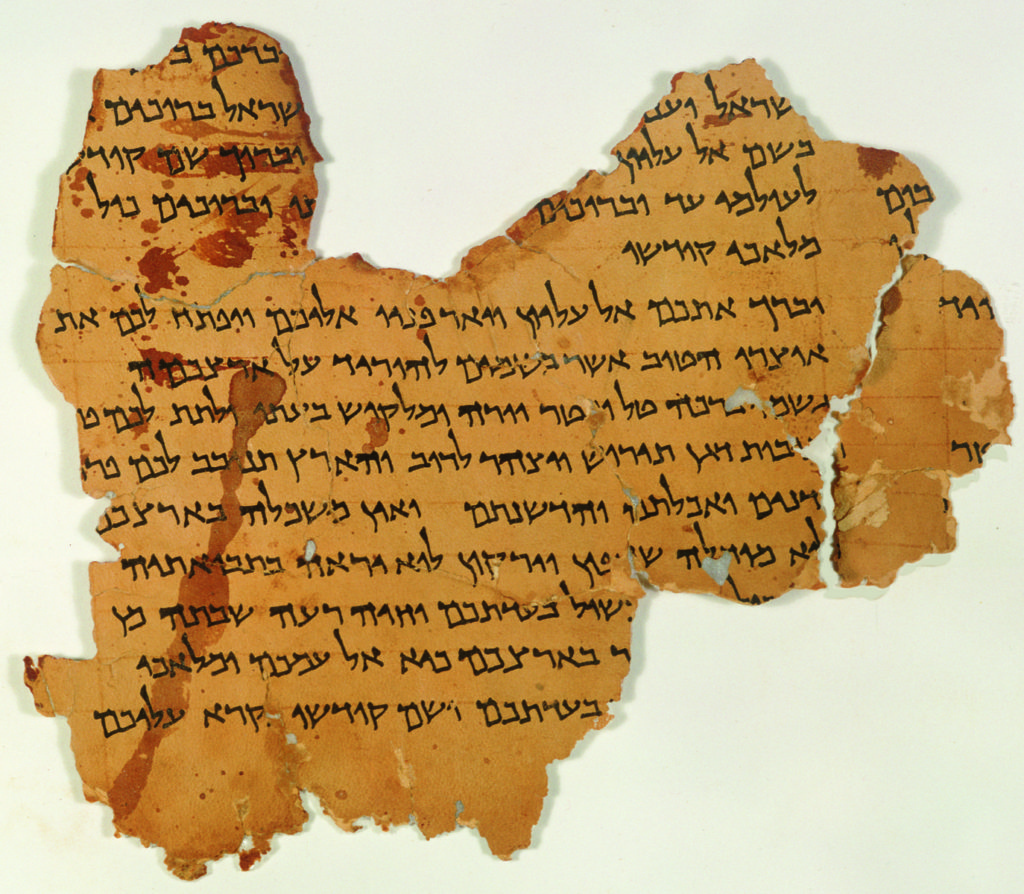 ברכם ב
שראל וענ שראל ברוכים
בשם אל עליון וברוך שם קודש
בים לעולמי עד וברוכים וברוכים כול
מלאכי קודשו
יברך אתכם אל עליון ויאר פניו אליכם ויפתח לכם את
אוצרו הטוב אשר בשמים להוריד על ארצכמה
גשמי ברכה טל ומטר יורה ומלקוש בעתו ולתת לכם פ
נובות דגן תירוש ויצהר לרוב והארץ תנובב לכם פרי
דנים ואכלתם והדשנתם ואין משכלה בארצכם
לוא מוחלה שדפון וירקון לוא יראה בתבואתיה
שול בעדתכם וחיה רעה שבתה מן
ר בארצכם כיא אל עמכם ומלאכי
בעדתכם ושם קודשו נקרא עליכם